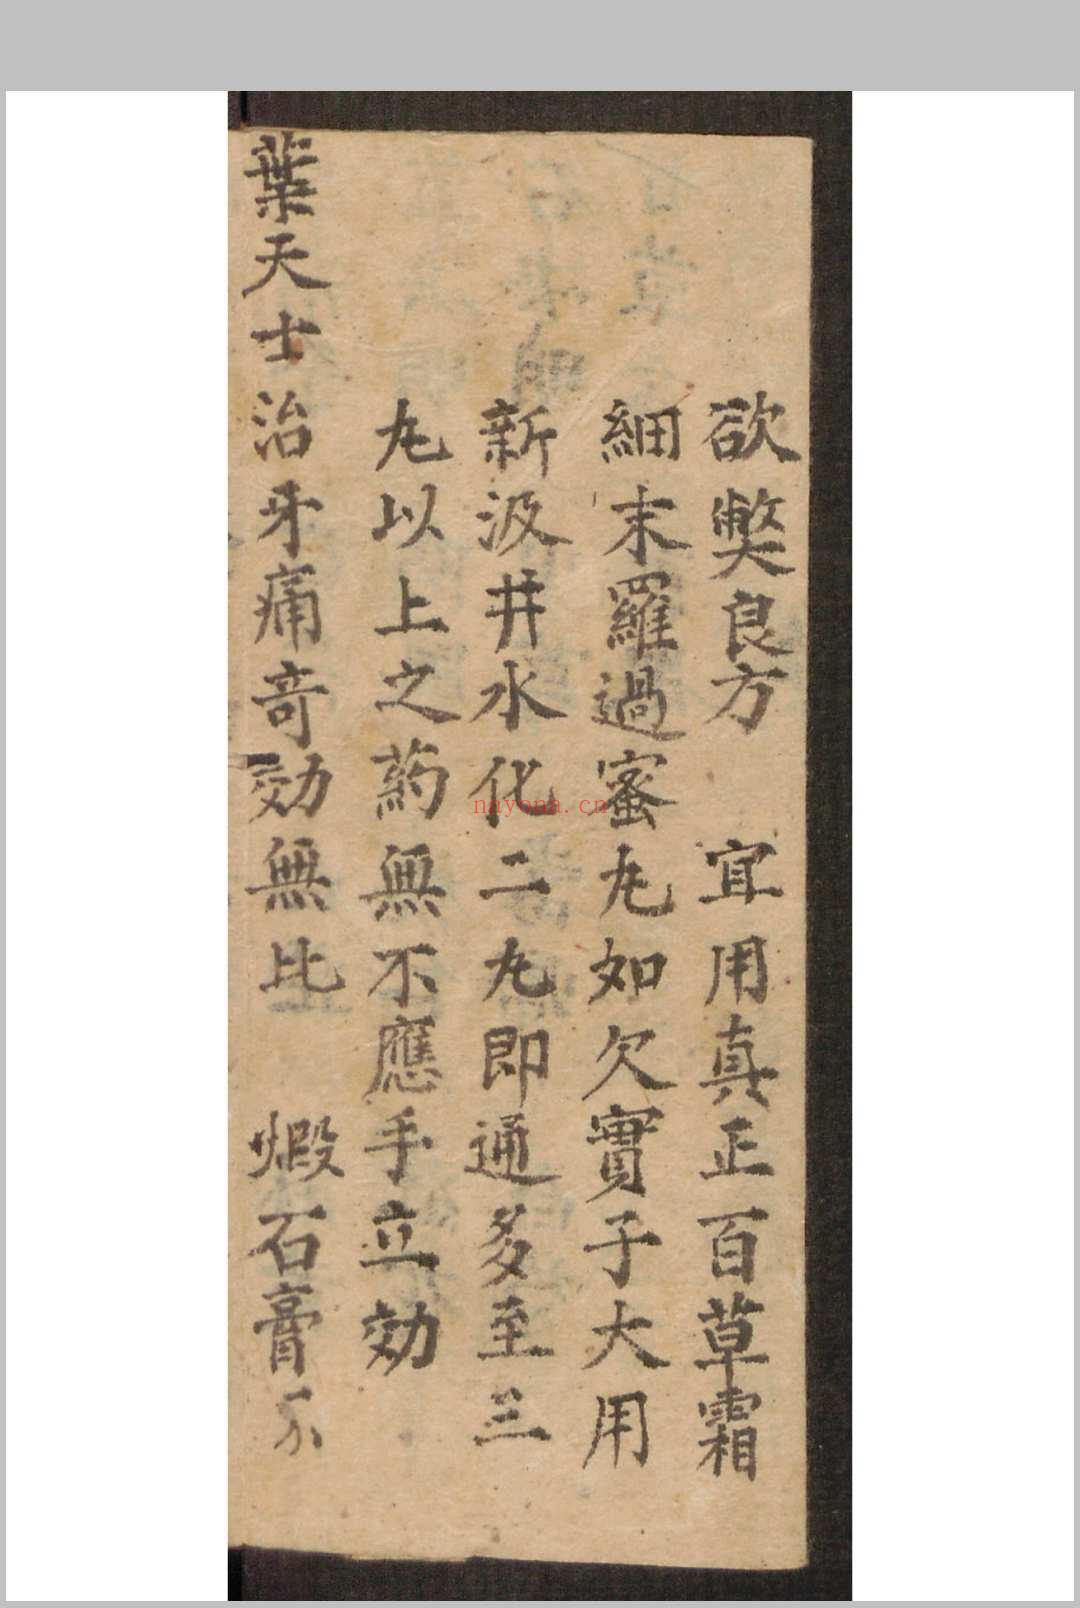 欲獘良方　宜用真正百草霜
細末羅過蜜丸如欠實子大用
新汲井水化二丸即通多至三
丸以上之药無不應手立効
葉天士治牙痛竒効無比　煆石膏
nayona.cn